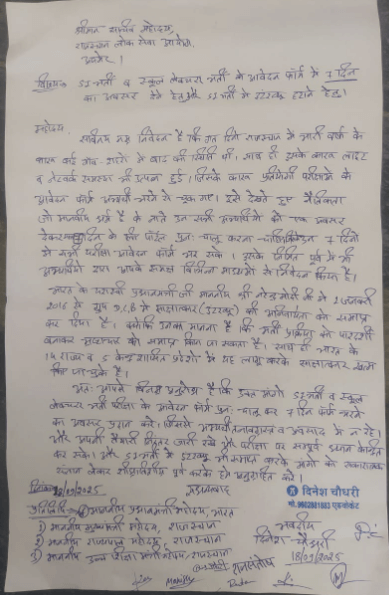 श्रीमान सचिव महोदय,
राजस्थान लोक सेवा आयोग,
अजमेर।
विषय:- SI भर्ती व स्कूल लेक्चरर भर्ती के आवेदन फॉर्म में 7 दिन
का अवसर देने हेतु और SI भर्ती में इंटरव्यू हटाने हेतु।
महोदय,
सविनय नम्र निवेदन है कि गत दिनों राजस्थान में भारी वर्षा के
कारण कई गांव-शहरों में बाढ़ की स्थिति थी। साथ ही इसके कारण लाइट
व नेटवर्क समस्या भी उत्पन्न हुई। जिसके कारण प्रतियोगी परीक्षाओं के
आवेदन फॉर्म भरने से चूक गए। इसे देखते हुए नैतिकता
के नाते उन सभी अभ्यर्थियों को एक अवसर
देकर दिन के लिए पोर्टल पुनः चालू करना 7 दिनों
में सभी परीक्षा आवेदन फॉर्म भर सके। इसके लिए पूर्व में भी
अभ्यर्थियों द्वारा आपके समक्ष विभिन्न माध्यमों से निवेदन किया है।
भारत के यशस्वी प्रधानमंत्री श्री माननीय श्री नरेन्द्र मोदी जी ने 1 जनवरी
2016 से ग्रुप B,C,D में साक्षात्कार (इंटरव्यू) की अनिवार्यता को समाप्त
कर दिया है। क्योंकि उनका मानना है कि भर्ती प्रक्रिया को पारदर्शी
बनाकर भ्रष्टाचार को समाप्त किया जा सकता है। साथ ही भारत के
व केन्द्र शासित प्रदेशों में यह लागू करके साक्षात्कार खत्म
किए जा चुके है।
अतः आपसे विनम्र अनुरोध है कि उक्त मांगों SI भर्ती व स्कूल
लेक्चरर भर्ती परीक्षा के आवेदन फॉर्म पुनः चालू कर 7 दिन फॉर्म भरने
का अवसर प्रदान करे। जिससे अभ्यर्थी व अवसाद में न रहे।
और अपनी तैयारी निरंतर जारी रखे और परीक्षा पर सम्पूर्ण ध्यान केंद्रित
कर सके। और SI भर्ती में इंटरव्यू समाप्त करके मांगों को सकारात्मक
लेकर शीघ्रातिशीघ्र पूर्ण करके हमें अनुग्रहित करे।
दिनांक /09/2025
धन्यवाद
दिनेश चौधरी
प्रतिलिपि- माननीय प्रधानमंत्री महोदय, भारत
भवदीय
1) माननीय मुख्यमंत्री महोदय, राजस्थान
दिनेश चौधरी
2) माननीय राज्यपाल महोदय, राजस्थान
18/09/2025
3) माननीय महोदय, राजस्थान